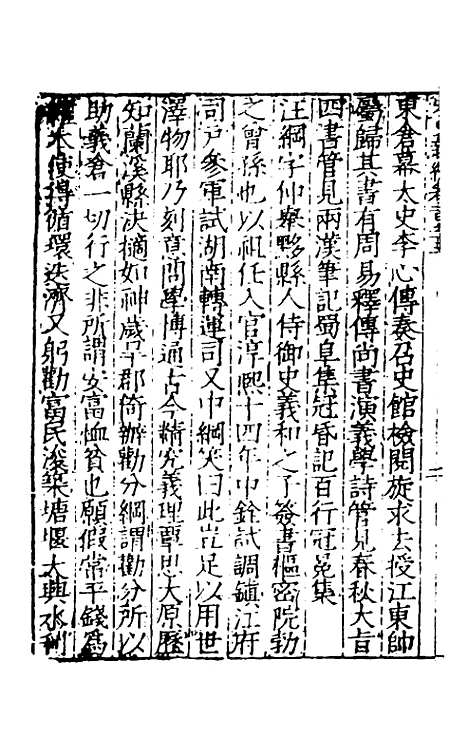 東倉幕太史李心傳奏召史館檢閱旋求去授江東帥
屬歸其書有周易釋傳尚書演義學詩管見春秋大旨
四書管見兩漢筆記蜀阜集冠昏記百行冠冕集
汪綱字仲舉黟縣人侍御史義和之子簽書樞密院勃
之曾孫也以祖任入官淳熙十四年中銓試調鎮江府
司戶參軍試湖南轉運司又中綱笑曰此豈足以用世
澤物耶乃刻意問學博通古今精究義理覃思大原歷
知蘭溪縣決摘如神歲旱郡倚辦勸分綱謂勸分所以
助義倉一切行之非所謂安富恤貧也願假常平錢為
糴本使得循環迭濟又躬勸富民浚築塘堰大興水利